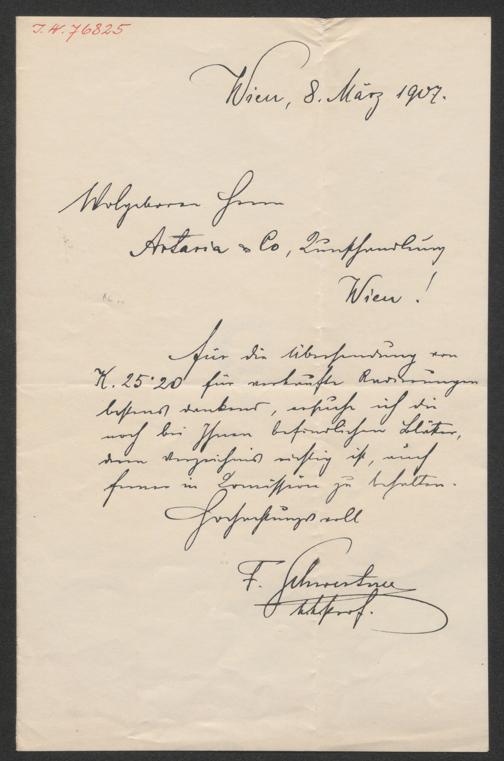 I.N. 76825
Wien, 8. März 1907.
Wolgeboren Herrn
Artaria & Co, Kunsthandlung
Wien!
Für die Übersendung von
K. 25·20 für verkaufte Radierungen
bestens dankend, ersuche ich die
noch bei Ihnen befindlichen Blätter,
deren Verzeichnis richtig ist, auch
ferner in Comission zu behalten.
Hochachtungsvoll
F.